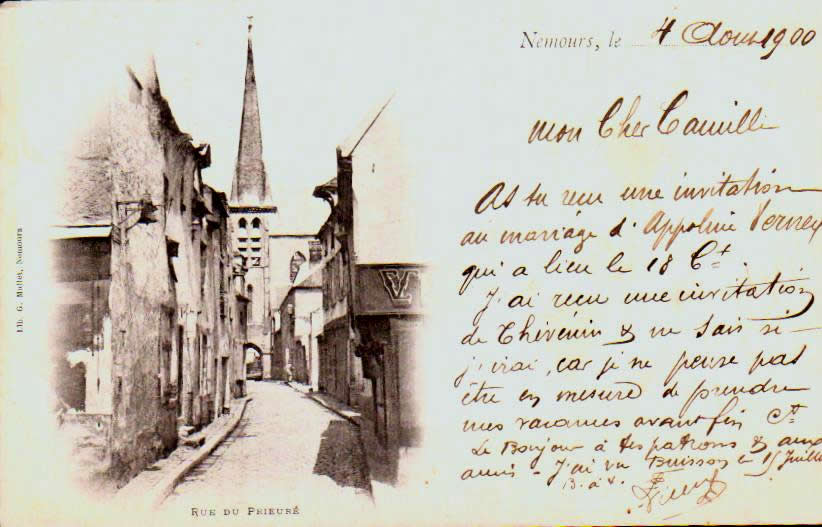 Nemours, le 4 Aout 1900
mon Cher Camille
As tu recu une invitation
au mariage d'Appoline Verney
qui a lieu le 18 Ct.
J'ai recu une invitation
de Thevenin & ne sais si
j'irai, car je ne pense pas
être en mesure de prendre
mes vacances avant fin Ct
Le Bonjour à tes patrons & aux
amis - J'ai vu Buisson le 15 Juillet
B. à v.
Lib. G. Mallet, Nemours
V
RUE DU PRIEURÉ